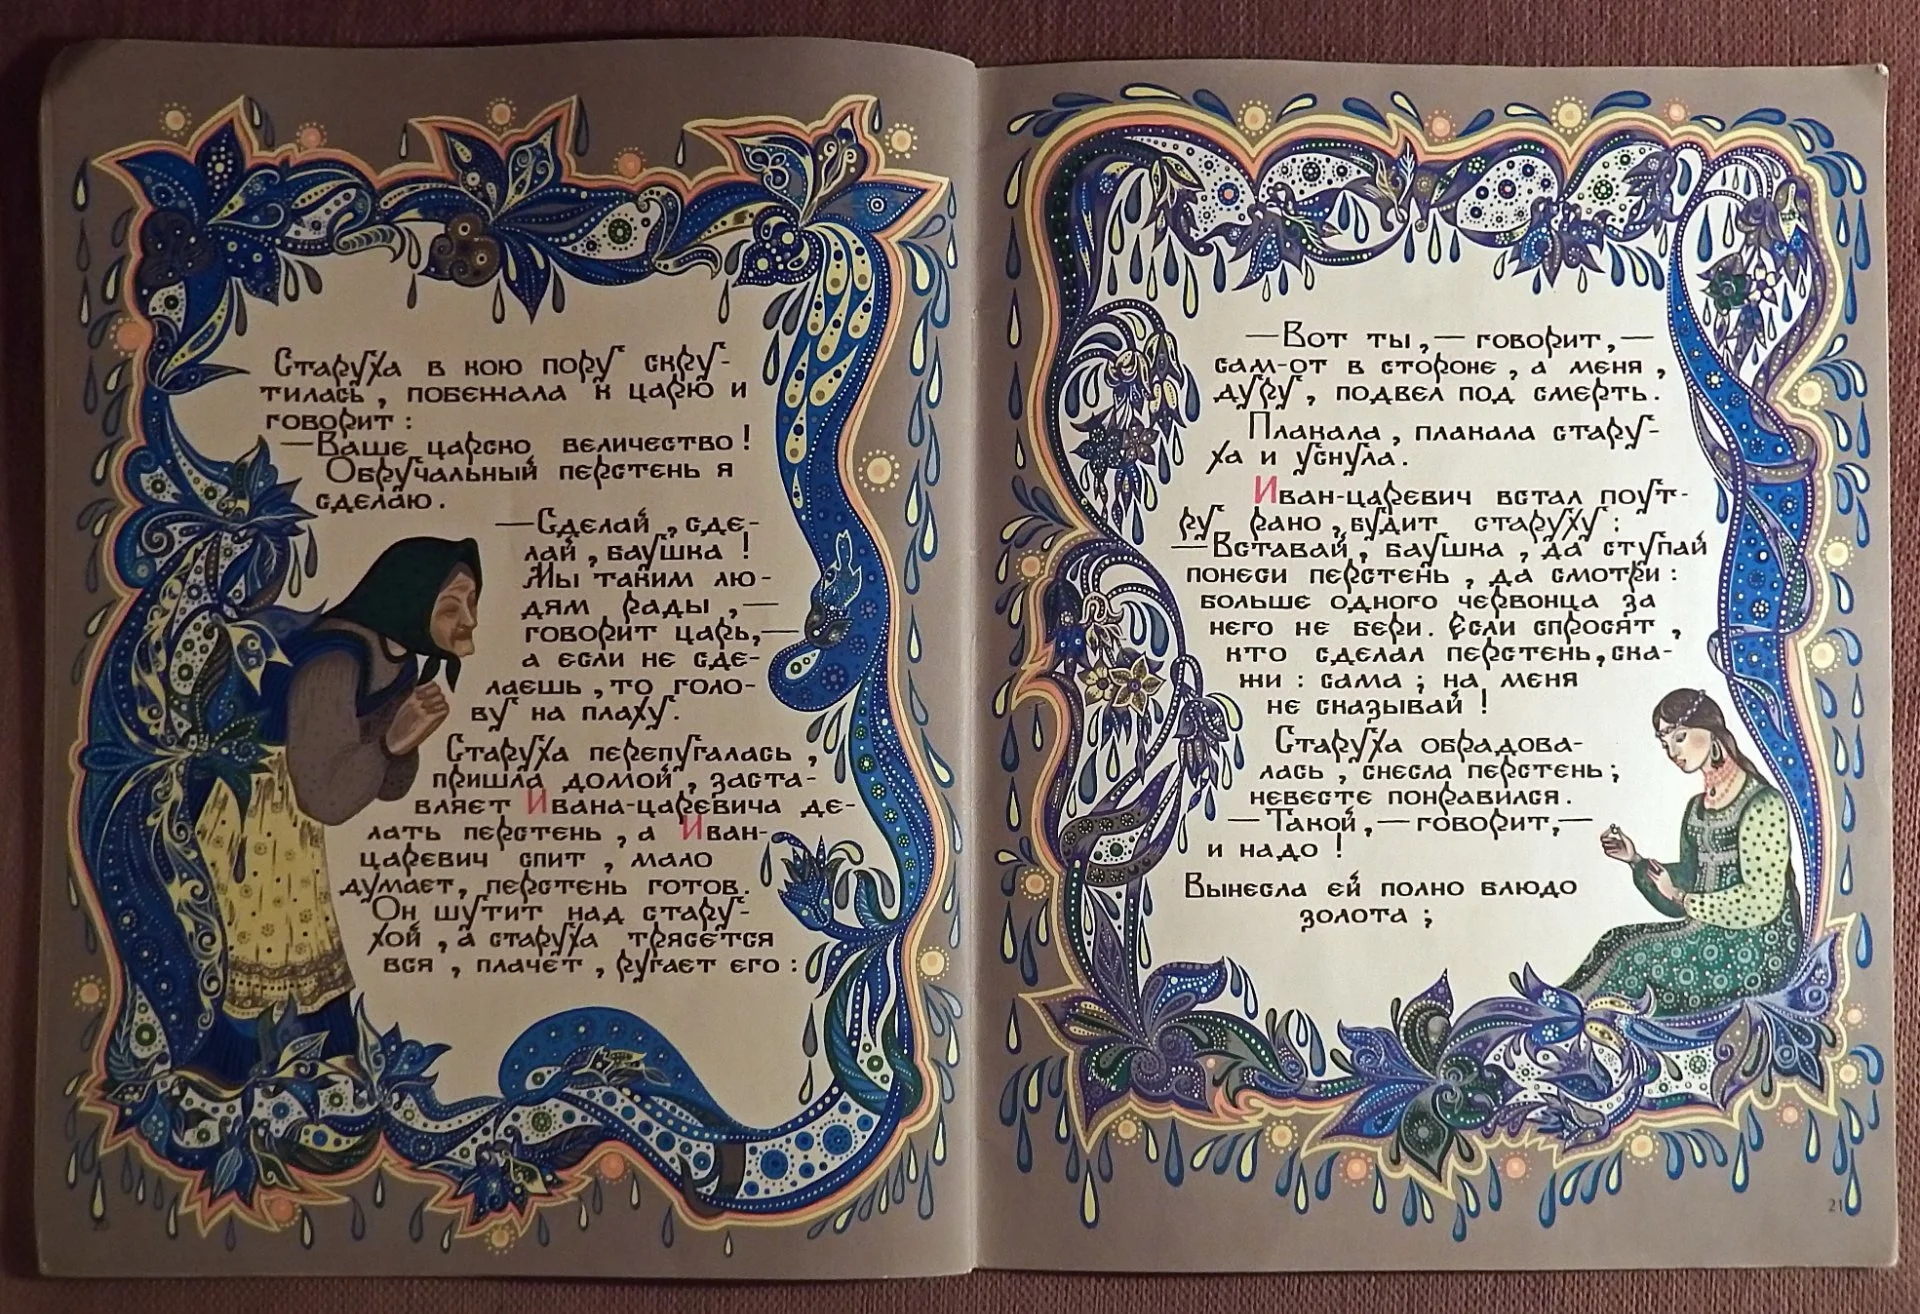 Старуха в кою пору скру-
тилась, побежала к царю и
говорит:
—Ваше царско величество!
Обручальный перстень я
сделаю.
—Сделай, сде-
лай, баушка!
Мы таким лю-
дям рады,—
говорит царь,—
а если не сде-
лаешь, то голо-
ву на плаху.
Старуха перепугалась,
пришла домой, заста-
вляет Ивана-царевича де-
лать перстень, а Иван-
царевич спит, мало
думает, перстень готов.
Он шутит над стару-
хой, а старуха трясется
вся, плачет, ругает его:
—Вот ты,— говорит,—
сам-от в стороне, а меня,
дуру, подвел под смерть.
Плакала, плакала стару-
ха и уснула.
Иван-царевич встал поут-
ру рано, будит старуху:
—Вставай, баушка, да ступай
понеси перстень, да смотри:
больше одного червонца за
него не бери. Если спросят,
кто сделал перстень, ска-
жи: сама; на меня
не сказывай!
Старуха обрадова-
лась, снесла перстень;
невесте понравился.
—Такой,— говорит,—
и надо!
Вынесла ей полно блюдо
золота;
21